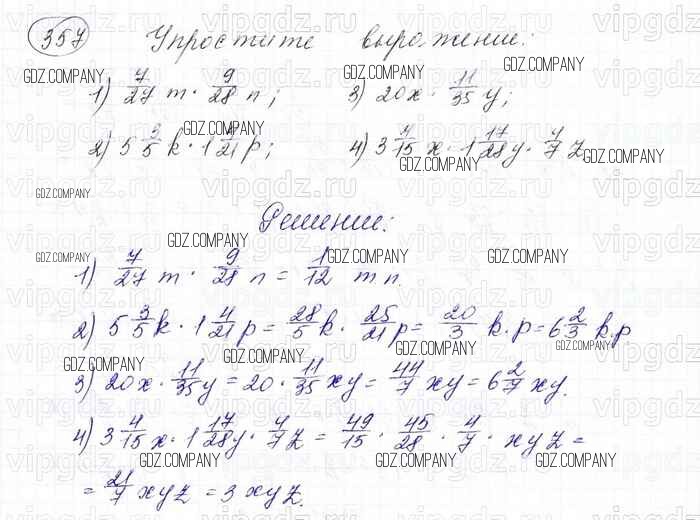 357 Упростите выражение:
1) 7/27 m · 9/28 n; 3) 20x · 11/35 y;
2) 5 3/5 k · 1 4/21 p; 4) 3 4/15 x · 1 17/28 y · 4/7 z
Решение:
1) 7/27 m · 9/28 n = 1/12 mn.
2) 5 3/5 k · 1 4/21 p = 28/5 k · 25/21 p = 20/3 k.p = 6 2/3 k.p
3) 20x · 11/35 y = 20 · 11/35 xy = 44/7 xy = 6 2/7 xy.
4) 3 4/15 x · 1 17/28 y · 4/7 z = 49/15 · 45/28 · 4/7 · xyz =
= 21/7 xyz = 3 xyz.